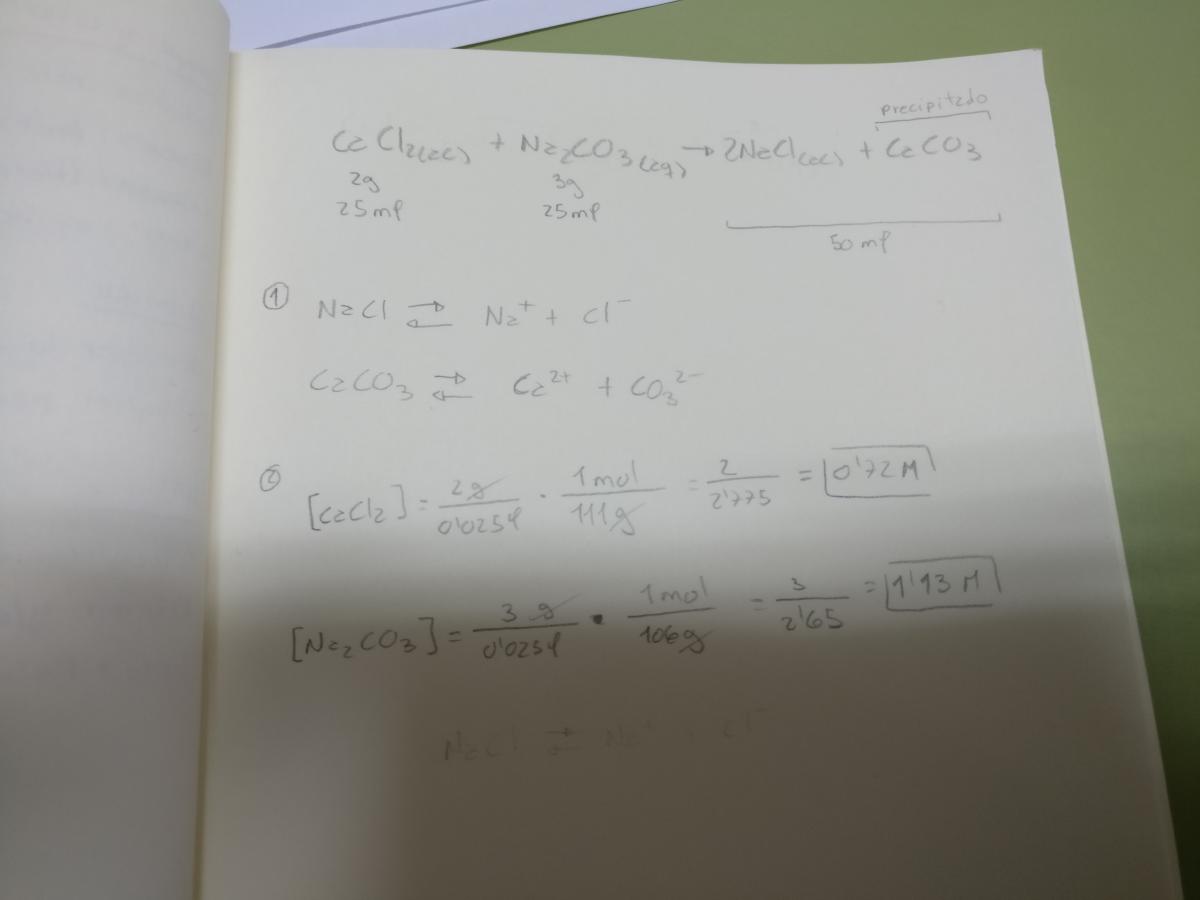 precipitado
CaCl₂(ac) + Na₂CO₃(aq) → 2NaCl(ac) + CaCO₃
2g 3g
25ml 25ml
50 ml
① NaCl ⇄ Na⁺ + Cl⁻
CaCO₃ ⇄ Ca²⁺ + CO₃²⁻
② [CaCl₂] = 2g/0'025l · 1mol/111g = 2/2'775 = 0'72 M
[Na₂CO₃] = 3g/0'025l · 1mol/106g = 3/2'65 = 1'13 M
NaCl ⇄ Na⁺ + Cl⁻